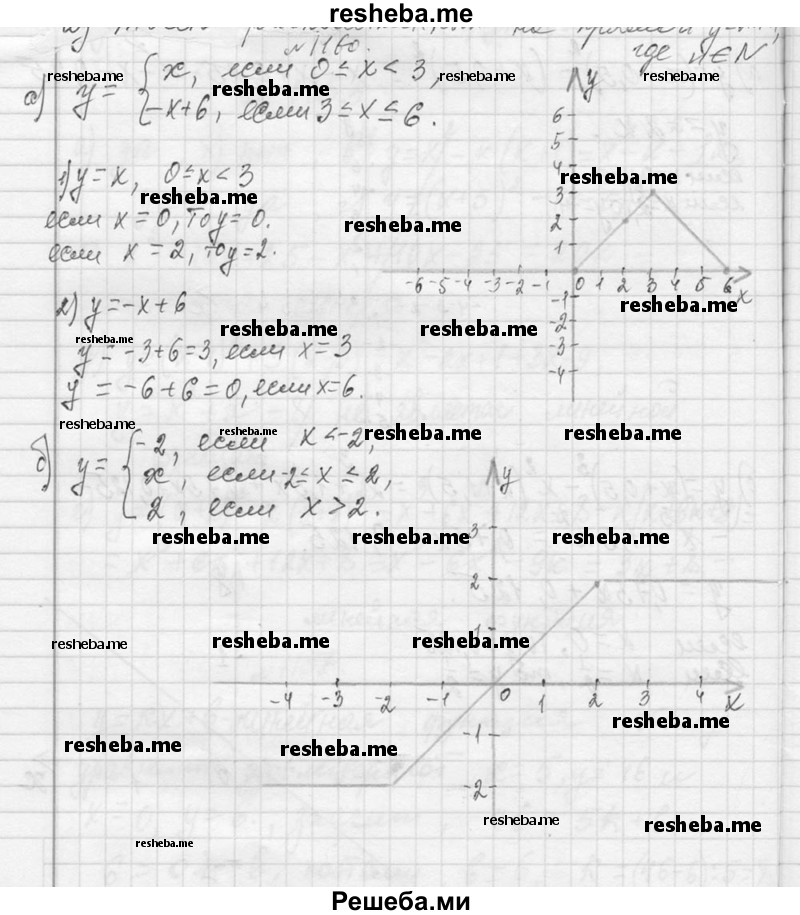 resheba.me
где n∈N
№1160.
а) y = { x, если 0 ≤ x < 3,
-x+6, если 3 ≤ x ≤ 6.
resheba.me resheba.me resheba.me resheba.me
1) y = x, 0 ≤ x < 3
resheba.me resheba.me
если x = 0, то y = 0.
resheba.me
если x = 2, то y = 2.
y
6
5
4
3
2
1
-6 -5 -4 -3 -2 -1 0 1 2 3 4 5 6 x
-1
-2
-3
-4
2) y = -x + 6
resheba.me
resheba.me resheba.me
resheba.me
y = -3+6 = 3, если x = 3
y = -6+6 = 0, если x = 6.
resheba.me resheba.me resheba.me resheba.me
б) y = { -2, если x < -2,
x, если -2 ≤ x ≤ 2,
2, если x > 2.
resheba.me resheba.me resheba.me
y
3
2
1
resheba.me resheba.me resheba.me
-4 -3 -2 -1 0 1 2 3 4 x
resheba.me
-1
resheba.me resheba.me
-2
resheba.me resheba.me
resheba.me
Решеба.ми